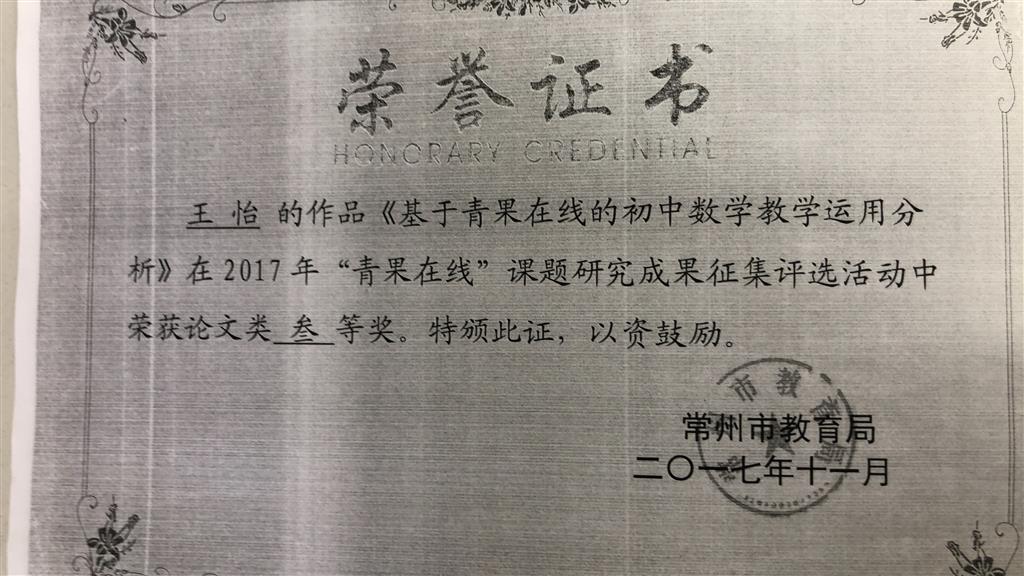 荣誉证书
HONORARY CREDENTIAL
王怡的作品《基于青果在线的初中数学教学运用分
析》在2017年“青果在线”课题研究成果征集评选活动中
荣获论文类叁等奖。特颁此证，以资鼓励。
市教育局
常州市教育局
二〇一七年十一月